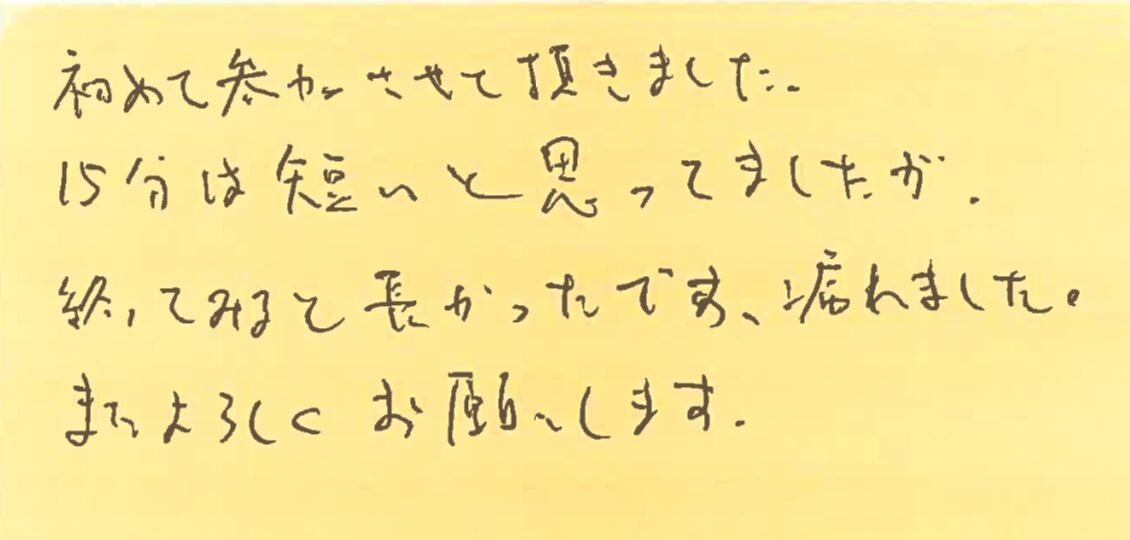 初めて参加させて頂きました.
15分は短いと思ってましたが.
終ってみると長かったです、疲れました。
またよろしくお願いします.